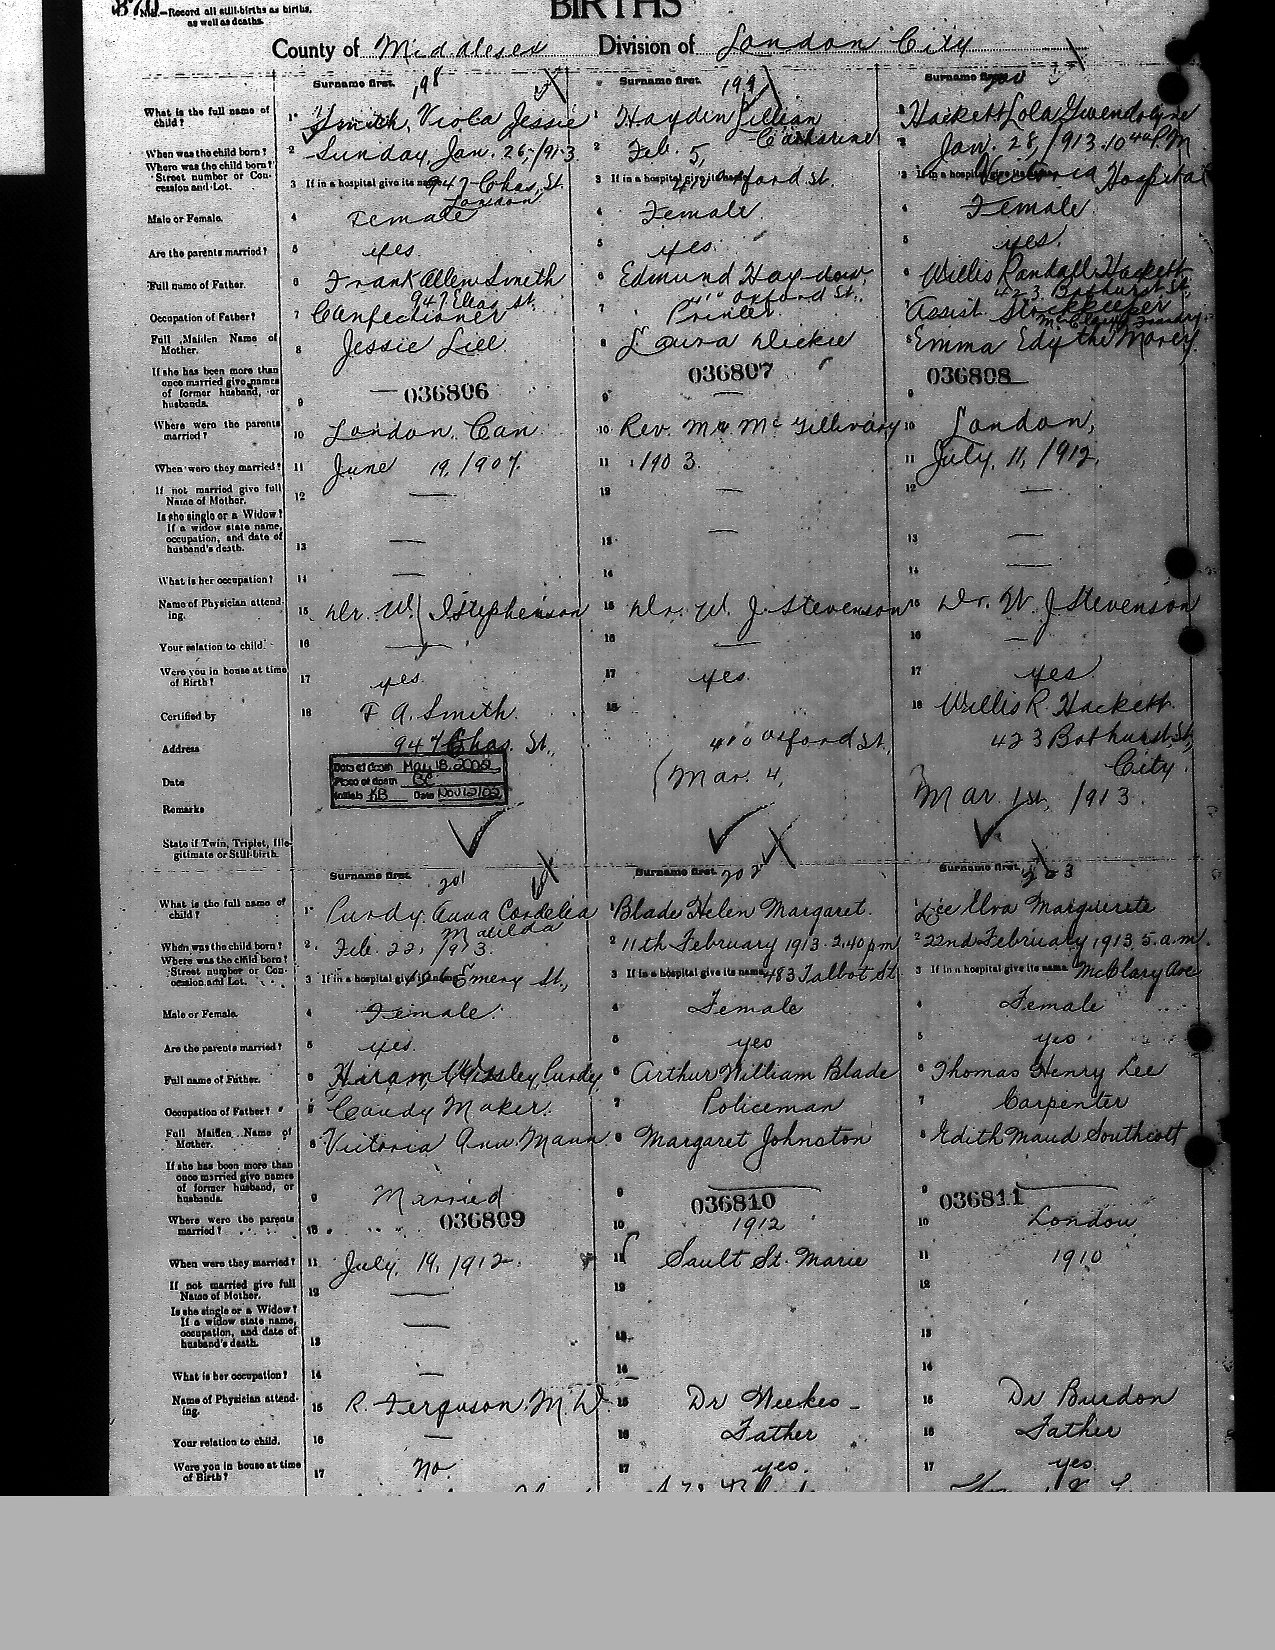 870
N.B.—Record all still-births as births, as well as deaths.
BIRTHS
County of Middlesex Division of London City
Surname first. 198
Surname first. 199
Surname first. 200
What is the full name of child? 1 Smith, Viola Jessie
1 Hayden Lillian Catharine
1 Hackett Lola Gwendolyne
When was the child born? 2 Sunday, Jan. 26, 1913
2 Feb. 5,
2 Jan. 28, 1913. 10 P.M
Where was the child born? Street number or Concession and Lot. 3 If in a hospital give its name 947 Chas. St. London
3 If in a hospital give its name Oxford St.
3 If in a hospital give its name Victoria Hospital
Male or Female. 4 Female
4 Female
4 Female
Are the parents married? 5 yes
5 yes.
5 yes.
Full name of Father. 6 Frank Allen Smith
947 Chas. St.
6 Edmund Hayden,
Oxford St.
6 Willis Randall Hackett
423 Bathurst St.
Occupation of Father? 7 Confectioner
7 Printer
7 Assist. Storekeeper
McClary Foundry
Full Maiden Name of Mother. 8 Jessie Lill
8 Laura Dickie
8 Emma Edythe Morey
If she has been more than once married give names of former husband, or husbands. 9 — 036806
9 — 036807
9 036808
Where were the parents married? 10 London, Can
10 Rev. Mr. McGillivary
10 London,
When were they married? 11 June 19, 1907.
11 1903.
11 July, 11, 1912.
If not married give full Name of Mother. 12 —
12 —
12 —
Is she single or a Widow? If a widow state name, occupation, and date of husband's death. 13 —
13 —
13 —
What is her occupation? 14 —
14
14 —
Name of Physician attending. 15 Dr. W. J Stephenson
15 Dr. W. J. Stevenson
15 Dr. W. J Stevenson
Your relation to child. 16 —
16 —
16 —
Were you in house at time of Birth? 17 yes.
17 yes.
17 yes
Certified by 18 F A. Smith.
18
18 Willis R. Hackett.
Address 947 Chas. St.,
410 Oxford St.,
423 Bathurst St., City.
Date
Date of death May 18, 2002
Place of death BC
Initials KB Date Nov 12/02
Mar. 4,
Mar 1st, 1913.
Remarks
State if Twin, Triplet, Illegitimate or Still-birth.
Surname first. 201
Surname first. 202
Surname first. 203
What is the full name of child? 1 Purdy Anna Cordelia Matilda
1 Blade Helen Margaret.
1 Lee Elva Marguerite
When was the child born? 2 Feb. 22, 1913.
2 11th February 1913. 2.40 p m
2 22nd February 1913, 5. a.m.
Where was the child born? Street number or Concession and Lot. 3 If in a hospital give its name Emery St.,
3 If in a hospital give its name 483 Talbot St.
3 If in a hospital give its name McClary Ave
Male or Female. 4 Female.
4 Female
4 Female
Are the parents married? 5 yes.
5 yes
5 yes
Full name of Father. 6 Hiram Wesley Purdy
6 Arthur William Blade
6 Thomas Henry Lee
Occupation of Father? 7 Candy Maker.
7 Policeman
7 Carpenter
Full Maiden Name of Mother. 8 Victoria Ann Mann
8 Margaret Johnston
8 Edith Maud Southcott
If she has been more than once married give names of former husband, or husbands. 9 Married
9 — 036810
9 — 036811
Where were the parents married? 10 " " " 036809
10 1912
10 London
When were they married? 11 July, 19, 1912.
11 Sault St. Marie
11 1910
If not married give full Name of Mother. 12 —
12
12
Is she single or a Widow? If a widow state name, occupation, and date of husband's death. 13 —
13
13
What is her occupation? 14 —
14
14
Name of Physician attending. 15 R. Ferguson M.D.
15 Dr Weekes
15 Dr Burdon
Your relation to child. 16 —
16 Father
16 Father
Were you in house at time of Birth? 17 No.
17 yes.
17 yes.